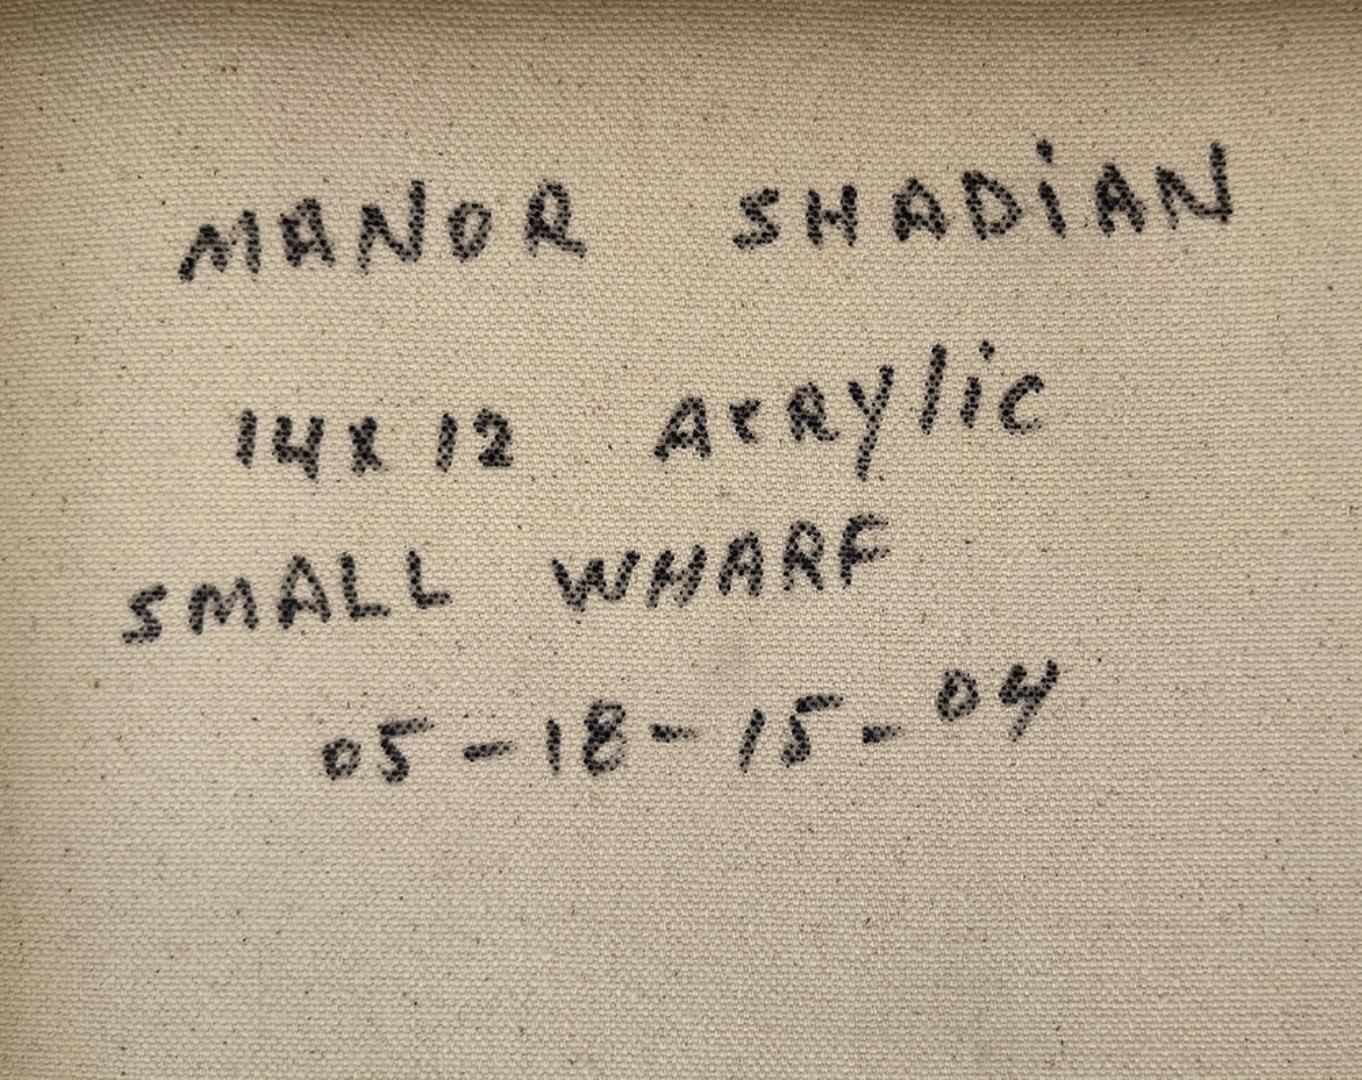 MANOR SHADiAN
14x12 Acrylic
SMALL WHARF
05-18-15-04